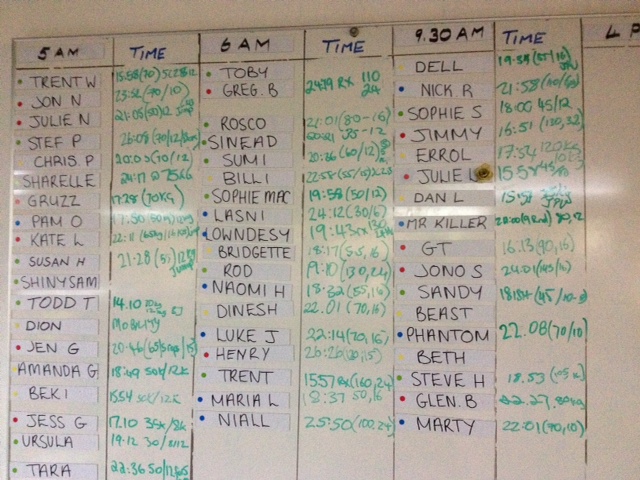 5 AM TIME 6 AM TIME 9.30 AM TIME 4 P
TRENT W 15:58(70)
JON N 23:52 (70/10)
JULIE N 21:05(50)12
STEF P 26:08 (70/12/
CHRIS. P 20:05(70/12)
SHARELLE 24:17
GRUZZ 17:28 (70KG)
PAM O 17:50
KATE L 22:11
SUSAN H 21:28
SHINYSAM
TODD T 14.10
DION
JEN G 20-46
AMANDA G 18:49 50K/12K
BEKI 15:54 50K/12K
JESS G 17.10 35K/8K
URSULA 19:12 30/8/12
TARA 22:36 50/12
TOBY
GREG. B 24:29 RX 110 24
ROSCO 21:01(80-16)
SINEAD 35-12
SUMI 20:36 (60/12)
BILLI 22:58
SOPHIE MAC 19:58 (50/12)
LASNI 24:12(30/6)
LOWNDESY 19:43
BRIDGETTE 18:17(55,16)
ROD 19:10 (130,24)
NAOMI H 18:32 (55,16)
DINESH 22.01 (70,16)
LUKE J 22:14(70,16)
HENRY 26:26
TRENT 15:57 RX (160,24)
MARIA L 18:37 50,16
NIALL 25:50(100,24)
DELL 19:59(55/16)
NICK R 21:58
SOPHIE S 18:00 45/12
JIMMY 16:51 (120,32)
ERROL 17:34 120KG
JULIE L 15:54
DAN L 15:
MR KILLER
GT 16:13(90,16)
JONO S 24:01
SANDY
BEAST
PHANTOM 22.08(70/10)
BETH
STEVE H 18:53
GLEN. B 22.27
MARTY 22:01(90,10)